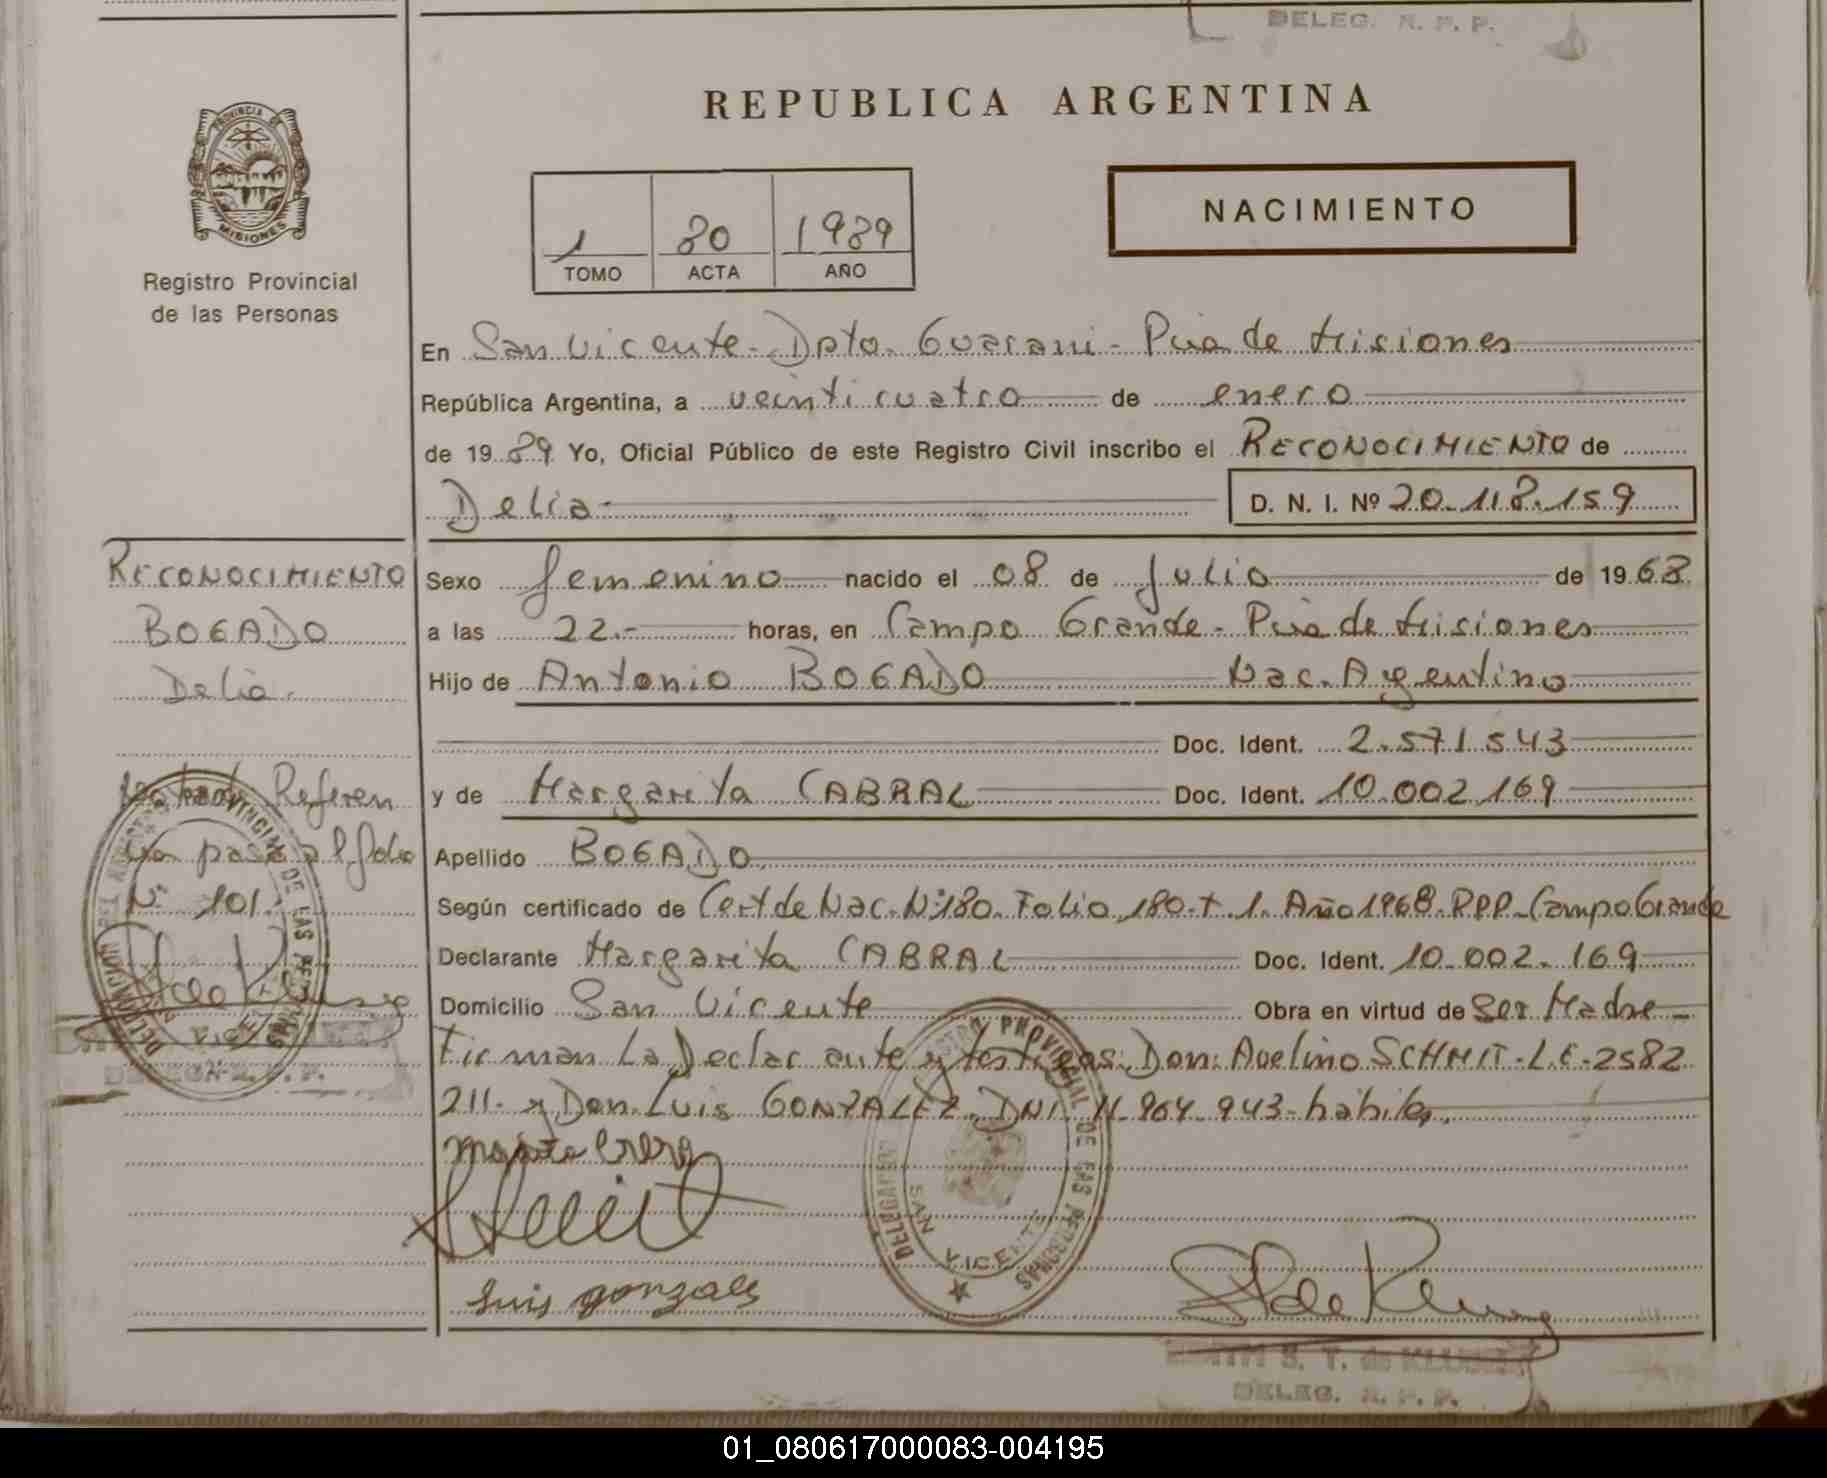 DELEG. R. P. P.
REPUBLICA ARGENTINA
PROVINCIA DE
MISIONES
Registro Provincial
de las Personas
1 80 1989
TOMO ACTA AÑO
NACIMIENTO
En San Vicente - Dpto. Guarani - Pcia de Misiones
República Argentina, a veinticuatro de enero
de 1989 Yo, Oficial Público de este Registro Civil inscribo el RECONOCIMIENTO de
Delia- D. N. I. Nº 20.118.159
Sexo femenino nacido el 08 de Julio de 1968
a las 22.- horas, en Campo Grande - Pcia de Misiones
Hijo de Antonio BOGADO Nac. Argentino
Doc. Ident. 2.571.543
y de Margarita CABRAL Doc. Ident. 10.002.169
Apellido BOGADO
Según certificado de Cert de Nac. Nº180. Folio 180. T. 1. Año 1968. RPP. Campo Grande
Declarante Margarita CABRAL Doc. Ident. 10.002.169
Domicilio San Vicente Obra en virtud de Ser Madre -
Firman La Declarante y testigos: Don: Avelino SCHMIT - L.E - 2582
211. y Don Luis GONZALEZ. DNI 11.964.943 - hábiles.
RECONOCIMIENTO
BOGADO
Delia.
Referen
cia pasa al folio
Nº 101.
REGISTRO PROVINCIAL DE LAS PERSONAS
DELEGACION
SAN VICENTE
luis gonzales
S. T. de KLUSKE
DELEG. R. P. P.
01_080617000083-004195